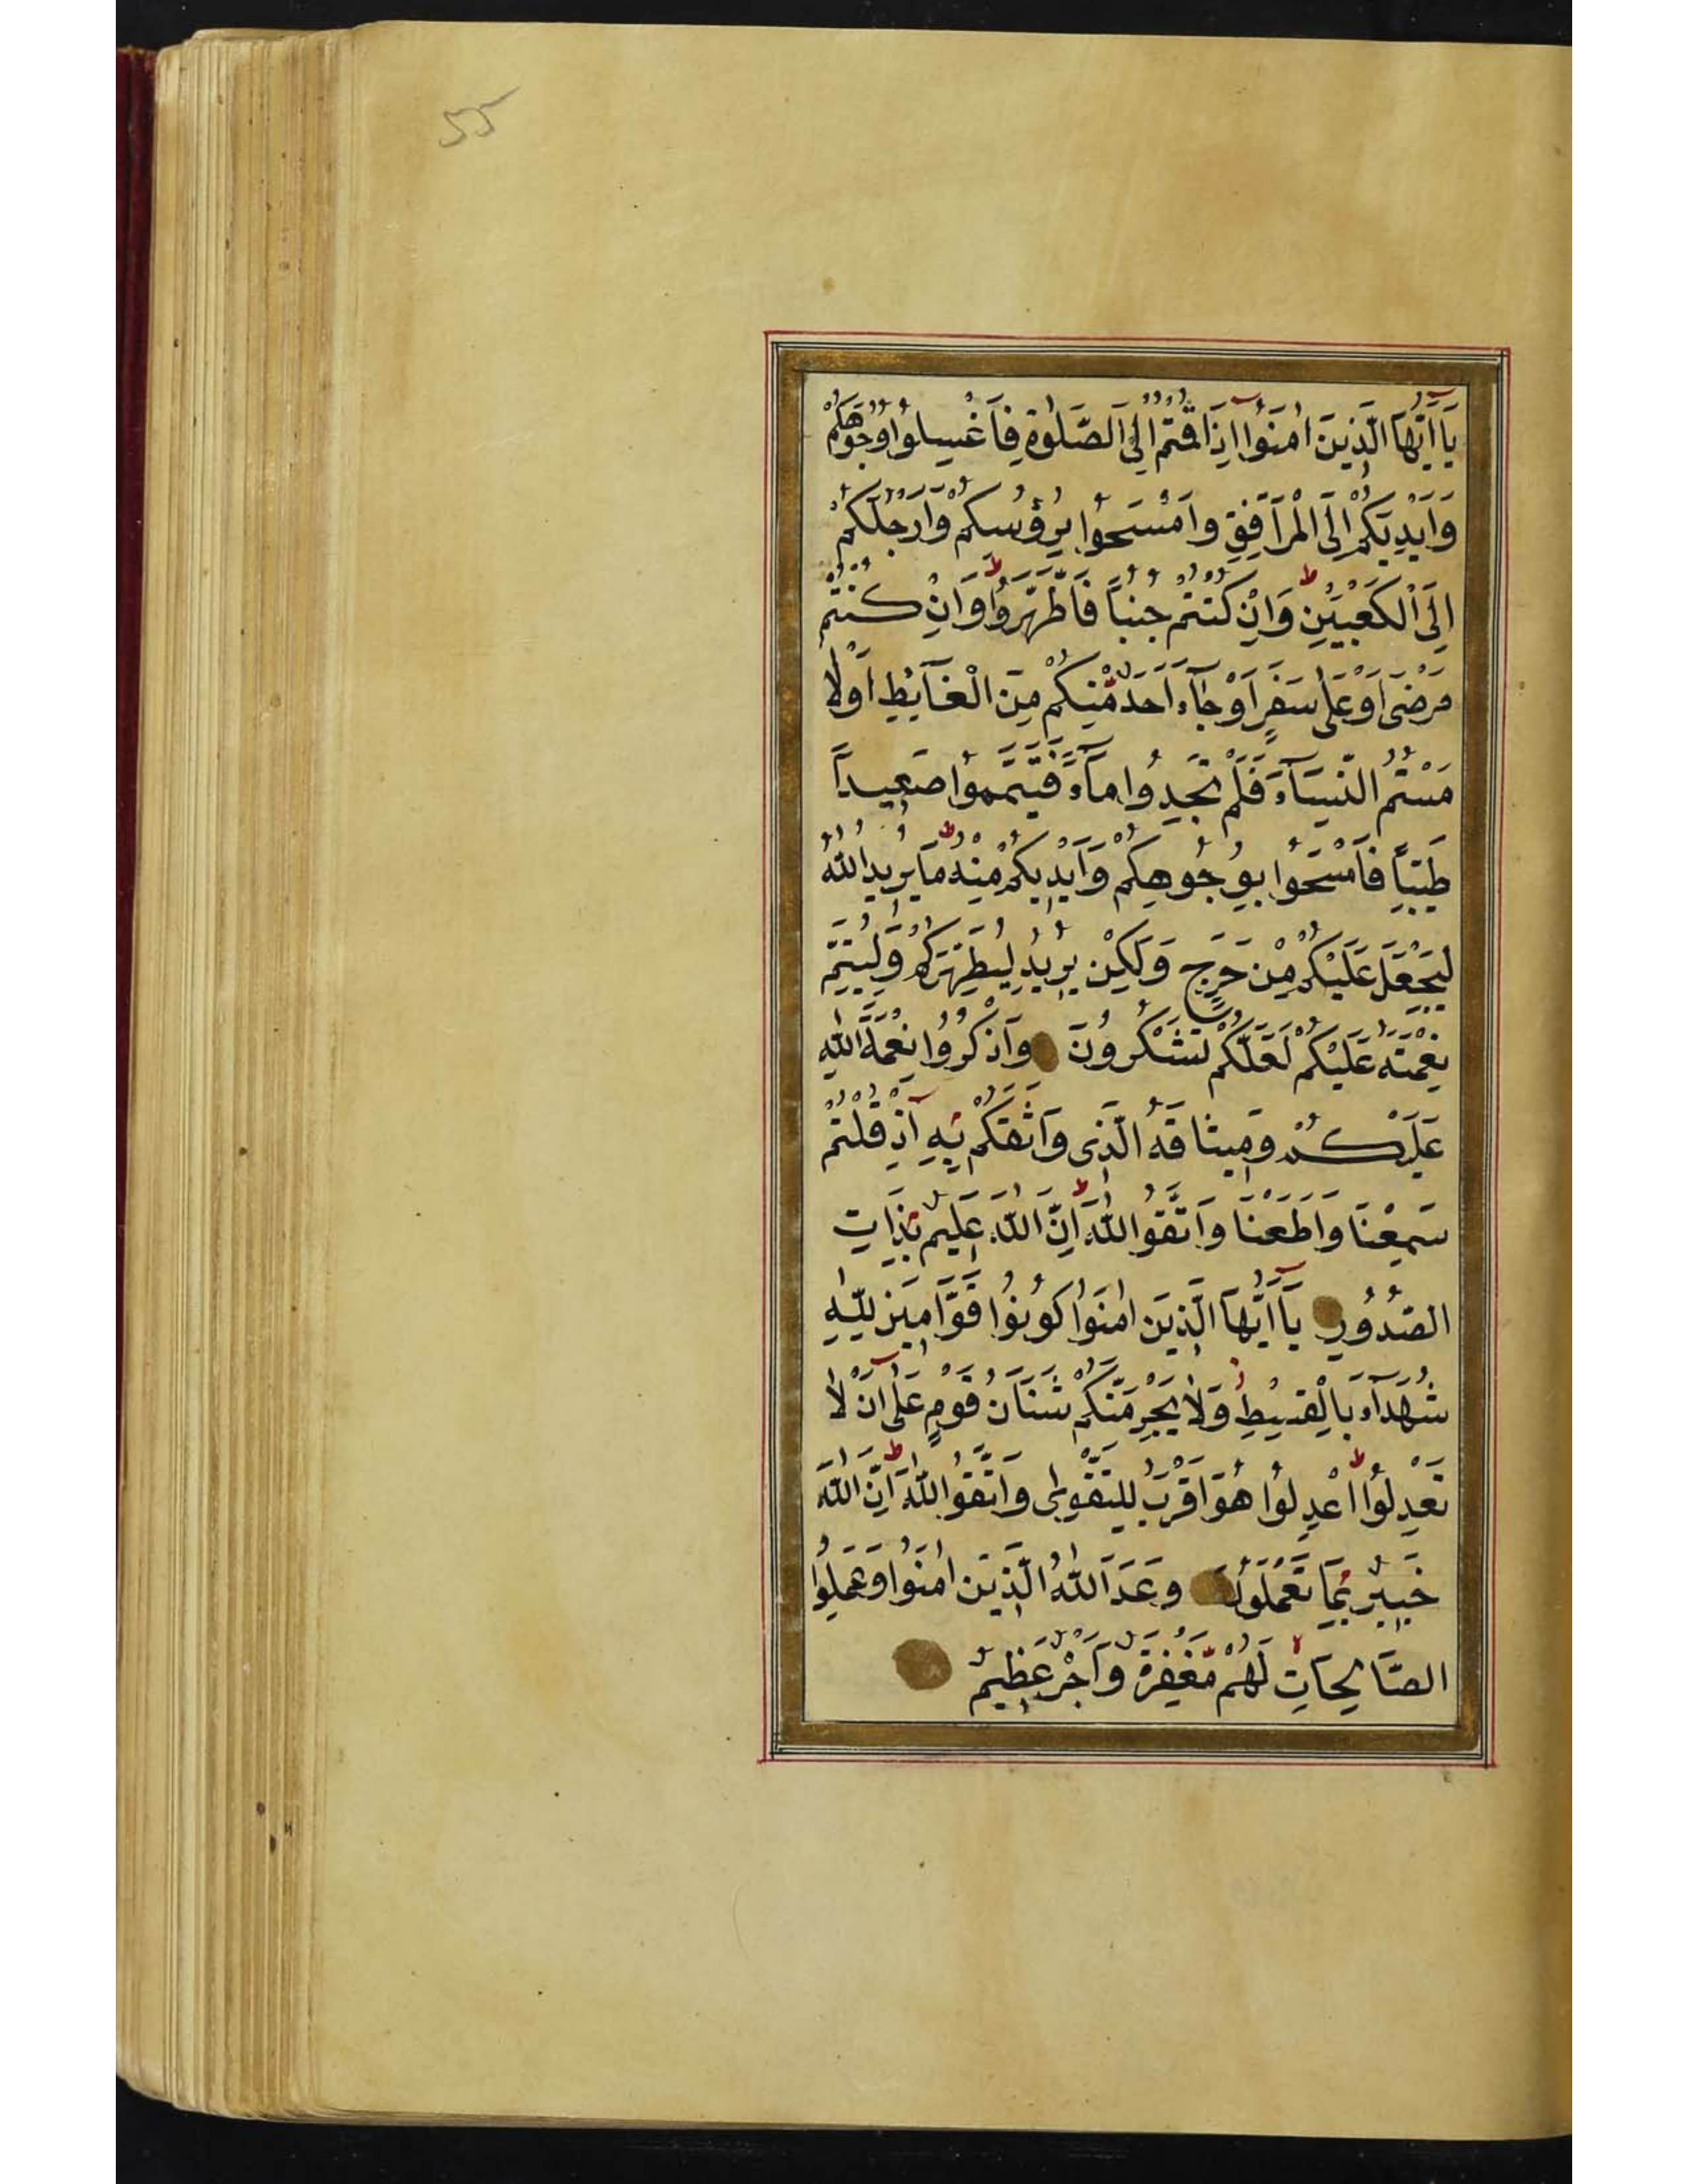 55
يَا أَيُّهَا الَّذِينَ اٰمَنُوا اِذَا قُمْتُمْ اِلَى الصَّلٰوةِ فَاغْسِلُوا وُجُوهَكُمْ
وَاَيْدِيَكُمْ اِلَى الْمَرَافِقِ وَامْسَحُوا بِرُؤُسِكُمْ وَاَرْجُلَكُمْ
اِلَى الْكَعْبَيْنِ ط وَاِنْ كُنْتُمْ جُنُبًا فَاطَّهَّرُوا ط وَاِنْ كُنْتُمْ
مَرْضَى اَوْ عَلَى سَفَرٍ اَوْ جَآءَ اَحَدٌ مِّنْكُمْ مِنَ الْغَآئِطِ اَوْ لَا
مَسْتُمُ النِّسَآءَ فَلَمْ تَجِدُوا مَآءً فَتَيَمَّمُوا صَعِيدًا
طَيِّبًا فَامْسَحُوا بِوُجُوهِكُمْ وَاَيْدِيكُمْ مِنْهُ ط مَا يُرِيدُ اللّٰهُ
لِيَجْعَلَ عَلَيْكُمْ مِنْ حَرَجٍ وَلٰكِنْ يُرِيدُ لِيُطَهِّرَكُمْ وَلِيُتِمَّ
نِعْمَتَهُ عَلَيْكُمْ لَعَلَّكُمْ تَشْكُرُونَ وَاذْكُرُوا نِعْمَةَ اللّٰهِ
عَلَيْكُمْ وَمِيثَاقَهُ الَّذِى وَاثَقَكُمْ بِهِ اِذْ قُلْتُمْ
سَمِعْنَا وَاَطَعْنَا وَاتَّقُوا اللّٰهَ ط اِنَّ اللّٰهَ عَلِيمٌ بِذَاتِ
الصُّدُورِ يَآ اَيُّهَا الَّذِينَ اٰمَنُوا كُونُوا قَوَّامِينَ لِلّٰهِ
شُهَدَآءَ بِالْقِسْطِ وَلَا يَجْرِمَنَّكُمْ شَنَاٰنُ قَوْمٍ عَلَى اَنْ لَا
تَعْدِلُوا ط اعْدِلُوا هُوَ اَقْرَبُ لِلتَّقْوٰى وَاتَّقُوا اللّٰهَ ط اِنَّ اللّٰهَ
خَبِيرٌ بِمَا تَعْمَلُونَ وَعَدَ اللّٰهُ الَّذِينَ اٰمَنُوا وَعَمِلُوا
الصَّالِحَاتِ لا لَهُمْ مَّغْفِرَةٌ وَاَجْرٌ عَظِيمٌ